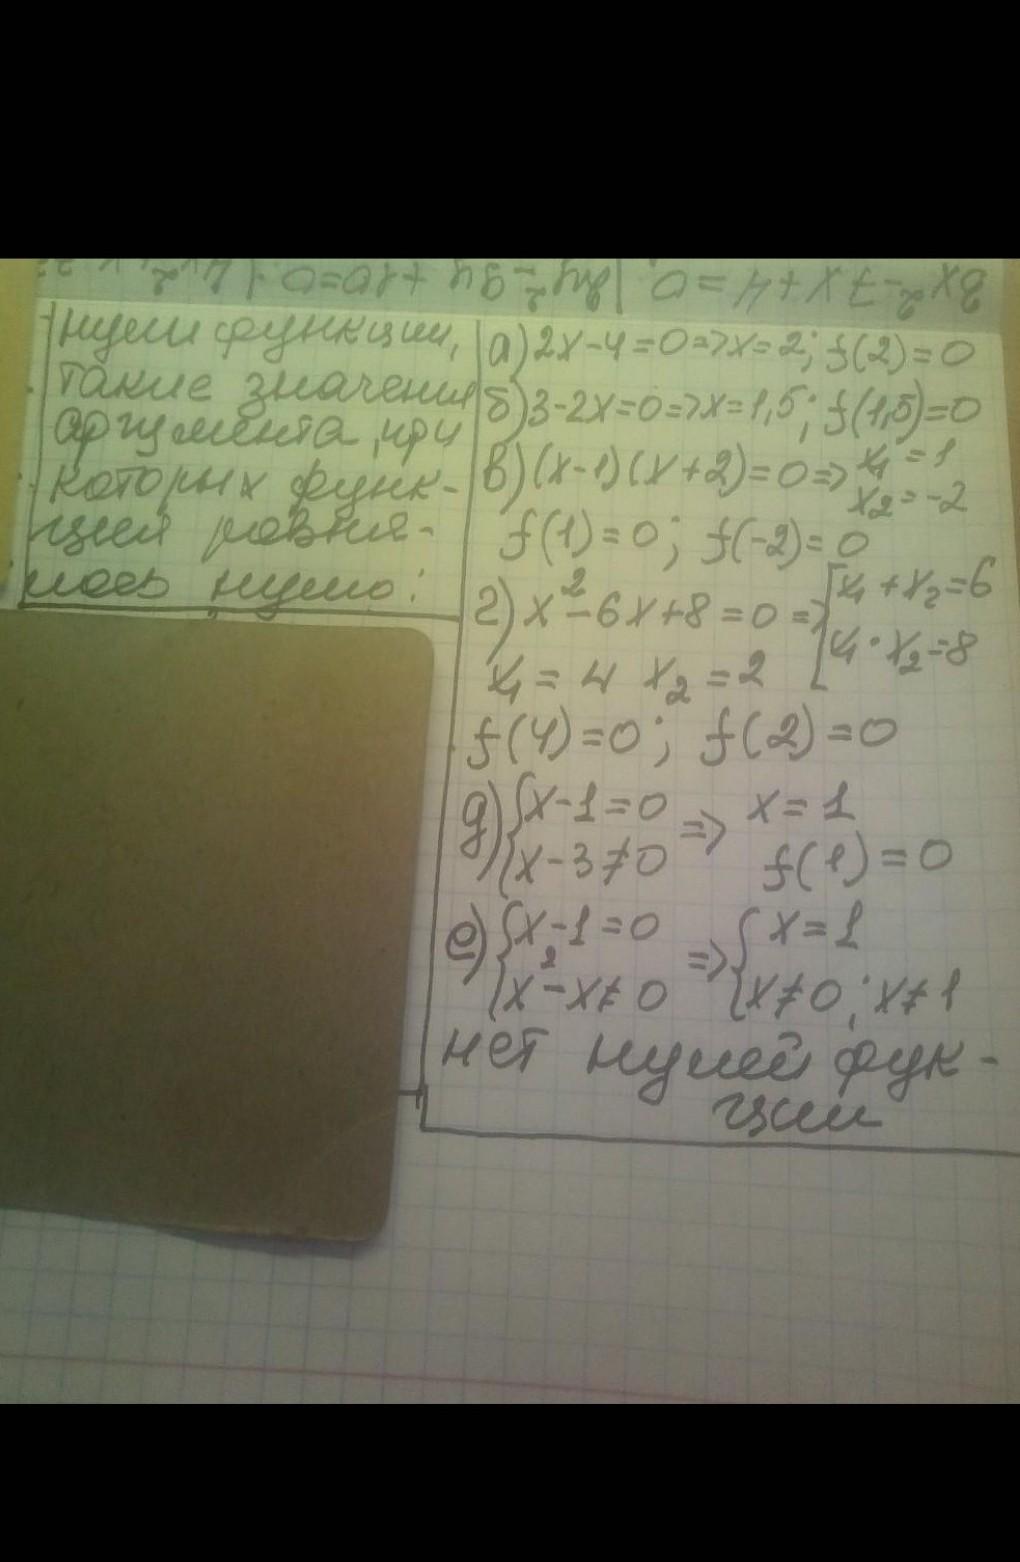 нули функции,
такие значения
аргумента, при
которых функ-
ция ровня-
лось нулю:
а) 2x-4=0=>x=2; f(2)=0
б) 3-2x=0=>x=1,5; f(1,5)=0
в) (x-1)(x+2)=0=> x₁=1
x₂=-2
f(1)=0; f(-2)=0
г) x²-6x+8=0=> [x₁+x₂=6
x₁·x₂=8
x₁=4 x₂=2
f(4)=0; f(2)=0
д) {x-1=0 => x=1
x-3≠0 f(1)=0
е) {x-1=0 => {x=1
x²-x≠0 x≠0; x≠1
нет нулей фук-
ции